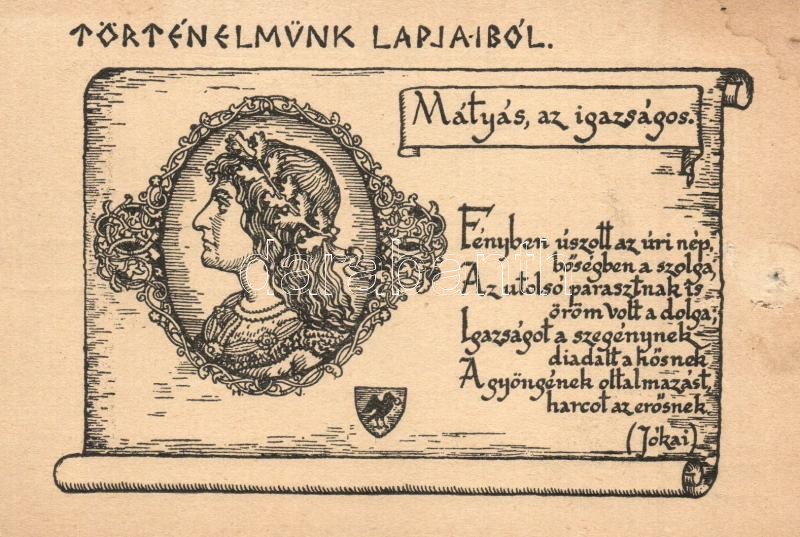 TÖRTÉNELMÜNK LAPJAIBÓL.
Mátyás, az igazságos.
Fényben úszott az úri nép,
bőségben a szolga,
Az utolsó parasztnak is
öröm volt a dolga;
Igazságot a szegénynek
diadalt a hősnek
A gyöngének oltalmazást,
harcot az erősnek.
(Jókai)
H. J.
darabanth